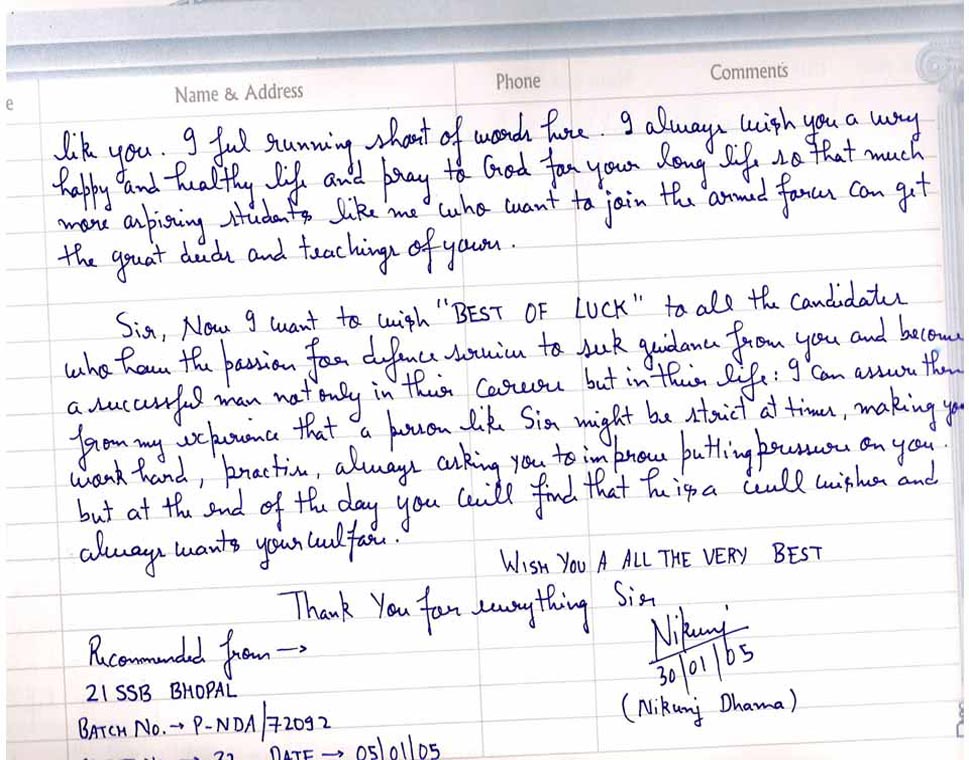 e Name & Address Phone Comments
like you. I feel running short of words here. I always wish you a very
happy and healthy life and pray to God for your long life so that much
more aspiring students like me who want to join the armed forces can get
the great deeds and teachings of yours.
Sir, Now I want to wish "BEST OF LUCK" to all the candidates
who have the passion for defence services to seek guidance from you and become
a successful man not only in their careers but in their life: I can assure them
from my experience that a person like Sir might be strict at times, making yo
work hard, practise, always asking you to improve putting pressure on you.
but at the end of the day you will find that he is a well wisher and
always wants your welfare.
WISH YOU A ALL THE VERY BEST
Thank You for everything Sir
Nikunj
30/01/05
Recommended from →
21 SSB BHOPAL
(Nikunj Dhama)
BATCH No. → P-NDA/72092
22 DATE → 05/01/05